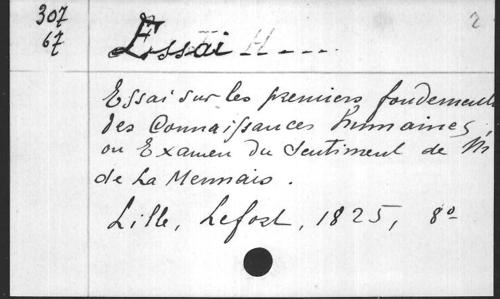 307
67
Essai H - - - .
2
Essai sur les premiers fondements
des Connaissances humaines,
ou Examen du Sentiment de Mr
de La Mennais.
Lille, Lefort, 1825, 8°